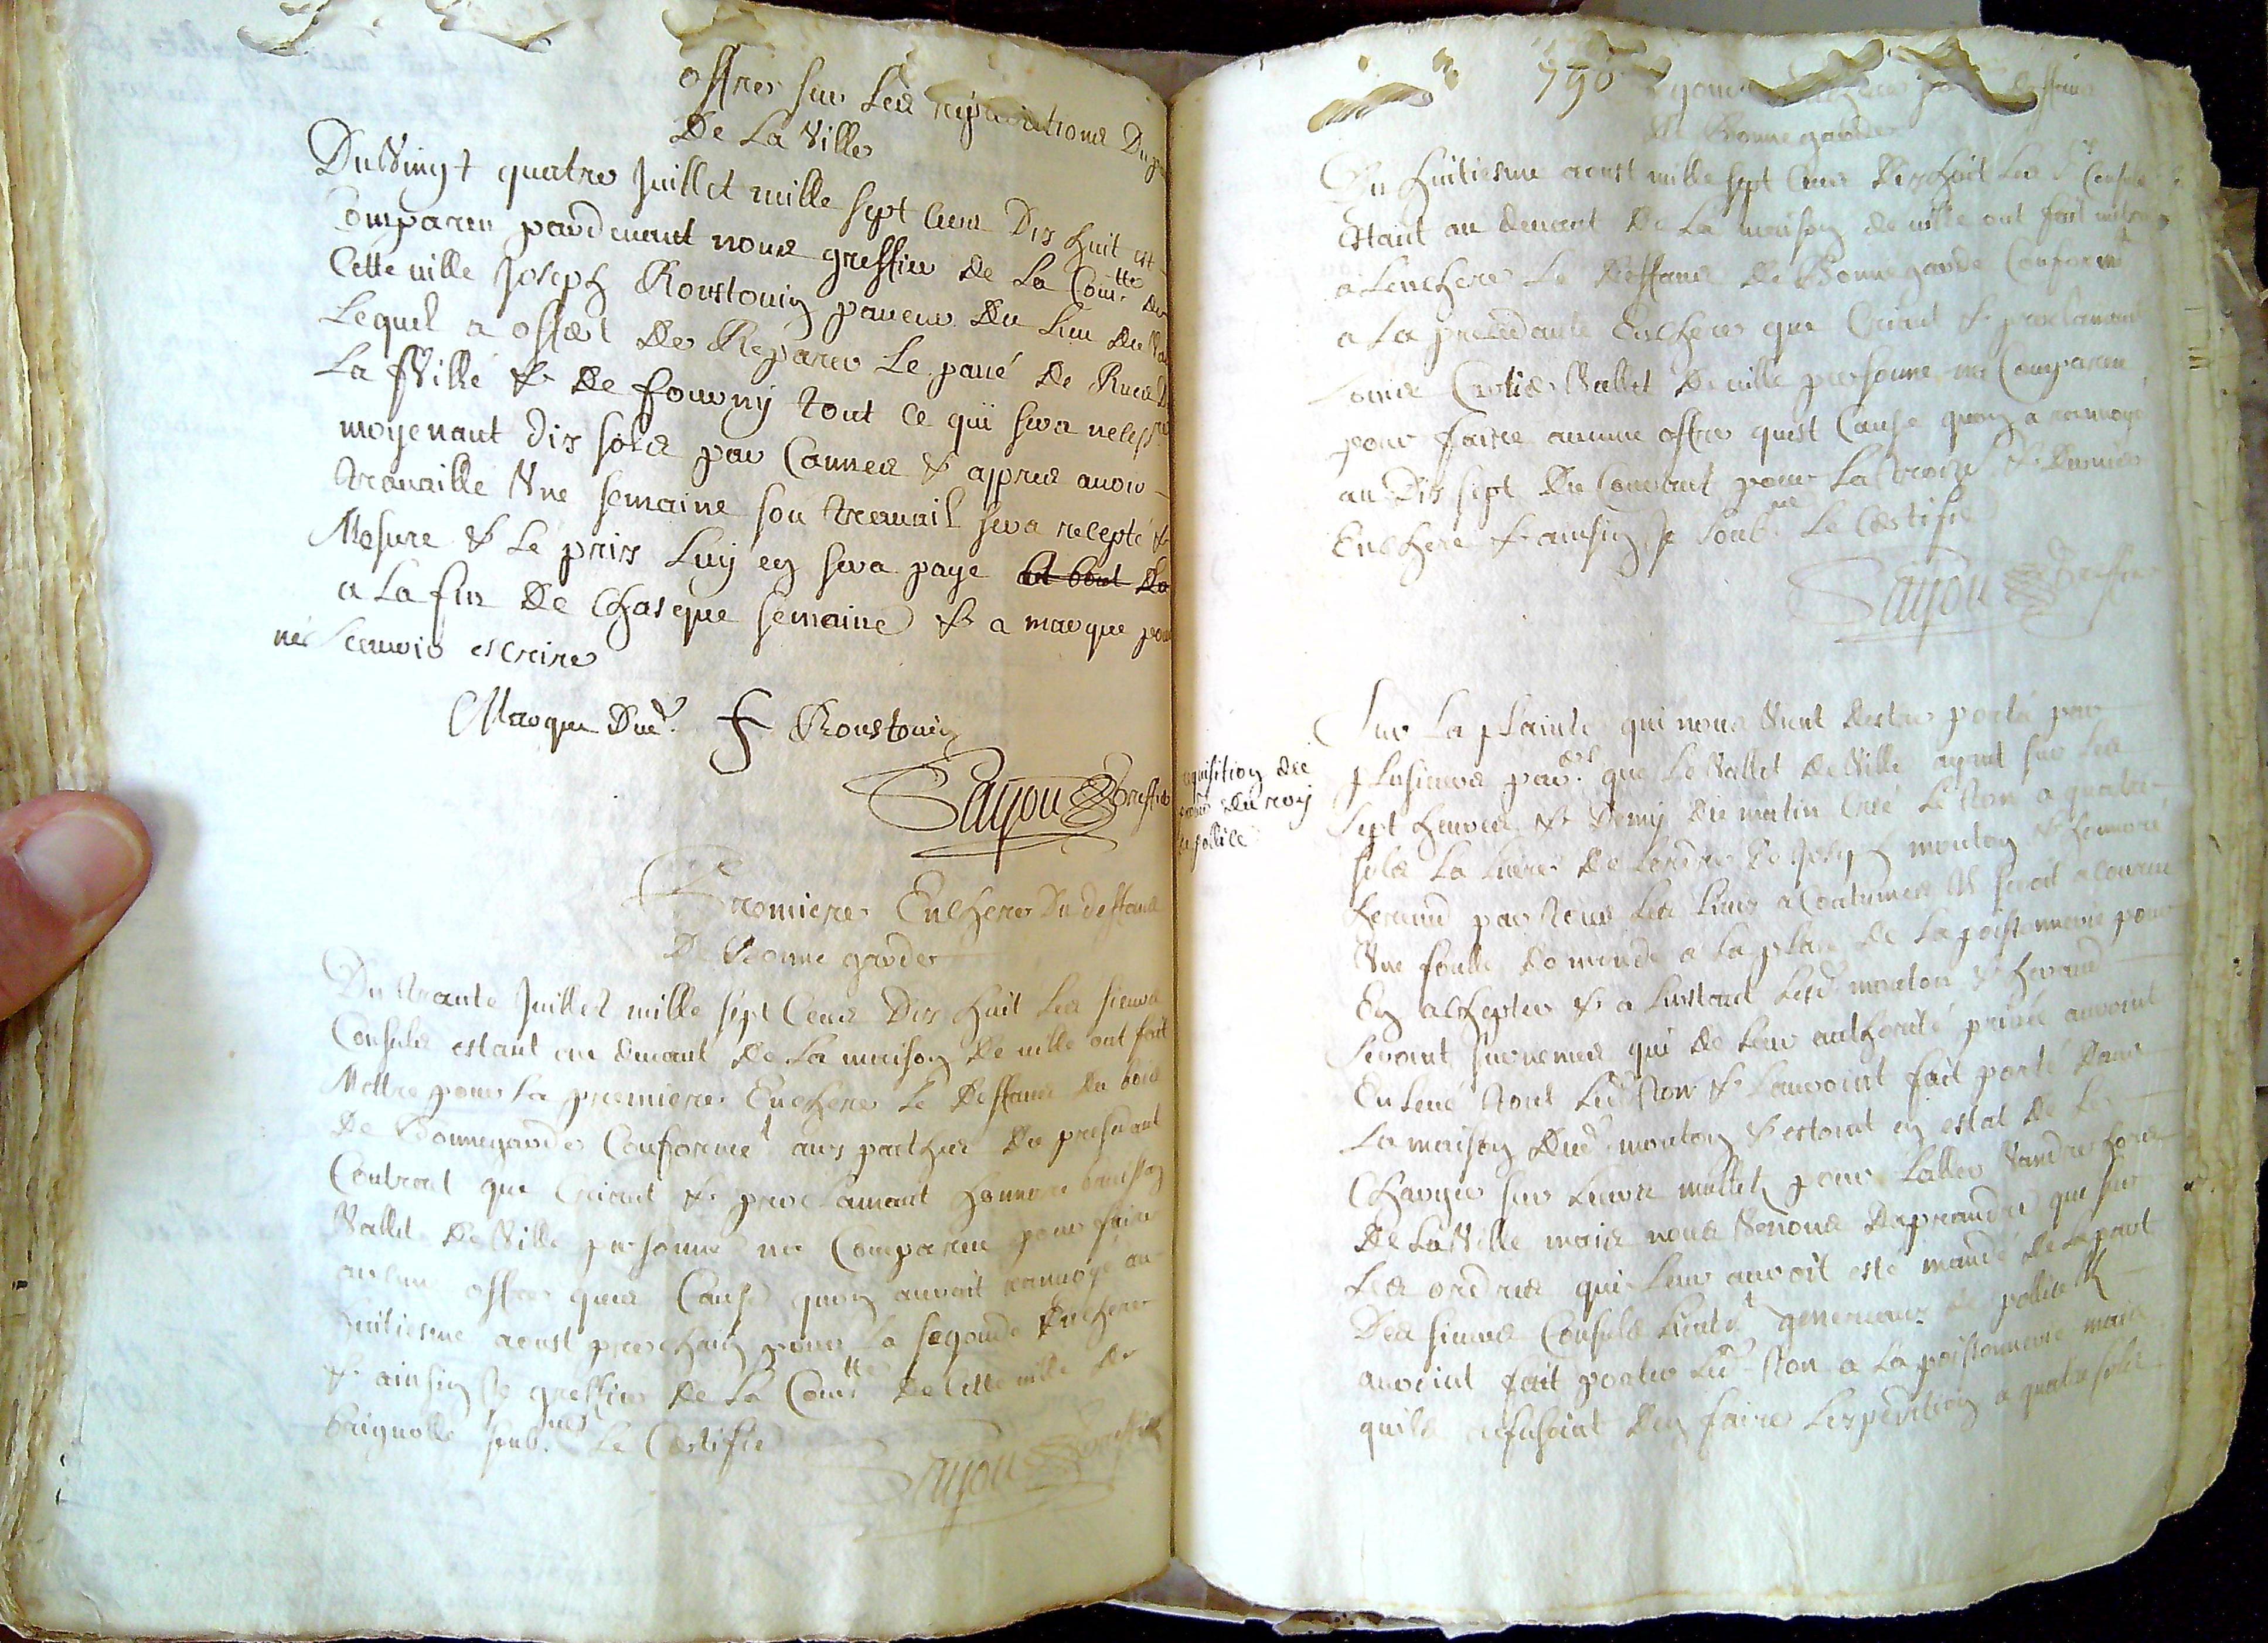 offres sur Les reparations Du
De La Ville
Du Vingt quatre Juillet mille sept Cens Dix huit est
Comparen pardevant nous greffier de La Com.tte de
Cette ville Joseph Roustouin paveur du Lieu du
Lequel a offert De Reparer Le pavé De Rues
La Ville & De fourny tout Ce qui sera necess
moyenant dix sols par Cannes & appres avoir
travaille Vne semaine son travail sera recepté &
Mesure & Le prix Luy en sera paye
a La fin De Chasque semaine & a marque pour
ne scavoir escrire
Marque Dud. f Roustouin
Sayou Greffier
Premiere Enchere Du deffans
De Bonne garde
Du trante Juillet mille sept Cens Dix huit Les sieurs
Consuls estant au devant De La maison De ville ont fait
Mettre pour La premiere Enchere Le Deffans Du bois
De Bonnegarde Conformet aux pacthes Du presedant
Contrat que Criant & proclamant honnore
Vallet De Ville personne na Comparen pour faire
aucune offre ques Cause quon auroit ranvoyé au
huitiesme aoust prochain pour La segonde Enchere
& ainsin Je greffier De La Com.tte De Cette ville De
brignolle soub.né Le Certifie
Sayou Greffier
790
De Bonnegarde
Du huitiesme aoust mille sept Cens Dix huit Les Srs Consuls
Estant au devant De La maison de ville ont fait mettre
a Lenchere Le Deffans De Bonnegarde Conformt
a La precedante Enchere que Criant & proclamant
Louis Vallet De ville personne na Comparen
pour faire aucune offre quest Cause quon a ranvoyé
au Dix sept Du Courant pour La troize & derniere
Enchere & ainsin Je soub.né Le Certifie
Sayou Greffier
requisition du
du roy
de police
Sur La plainte qui nous Vient destre porté par
plusieurs par.ers que Le Vallet De Ville ayant sur Les
sept heures & Demy du matin Crié Le ton a quatre
sols La Livre De Lordre De Joseph mouton & honnoré
heraud par tous Les Lieux acoutumes Il seroit acouru
Vne foulle Du monde a La place De La poissonnerie pour
En achepter & a Linstant Lesd. mouton & heraud
seroint survenus qui de Leur authorité privée auroint
Enlevé tout Led. ton & Lauroint fait porté Dans
La maison Dud. mouton & estoint en estat De Le
Charger sur Leurs mullets pour Laller Vandre hors
De La Ville mais nous Venons Daprandre que sur
Les ordres qui Leur avoit esté mandé De La part
Des sieurs Consuls Lieutt generaux De police Ils
auroint fait porter Led. ton a La poissonnerie mais
quils refusoint Den faire Lexpedition a quatre sols